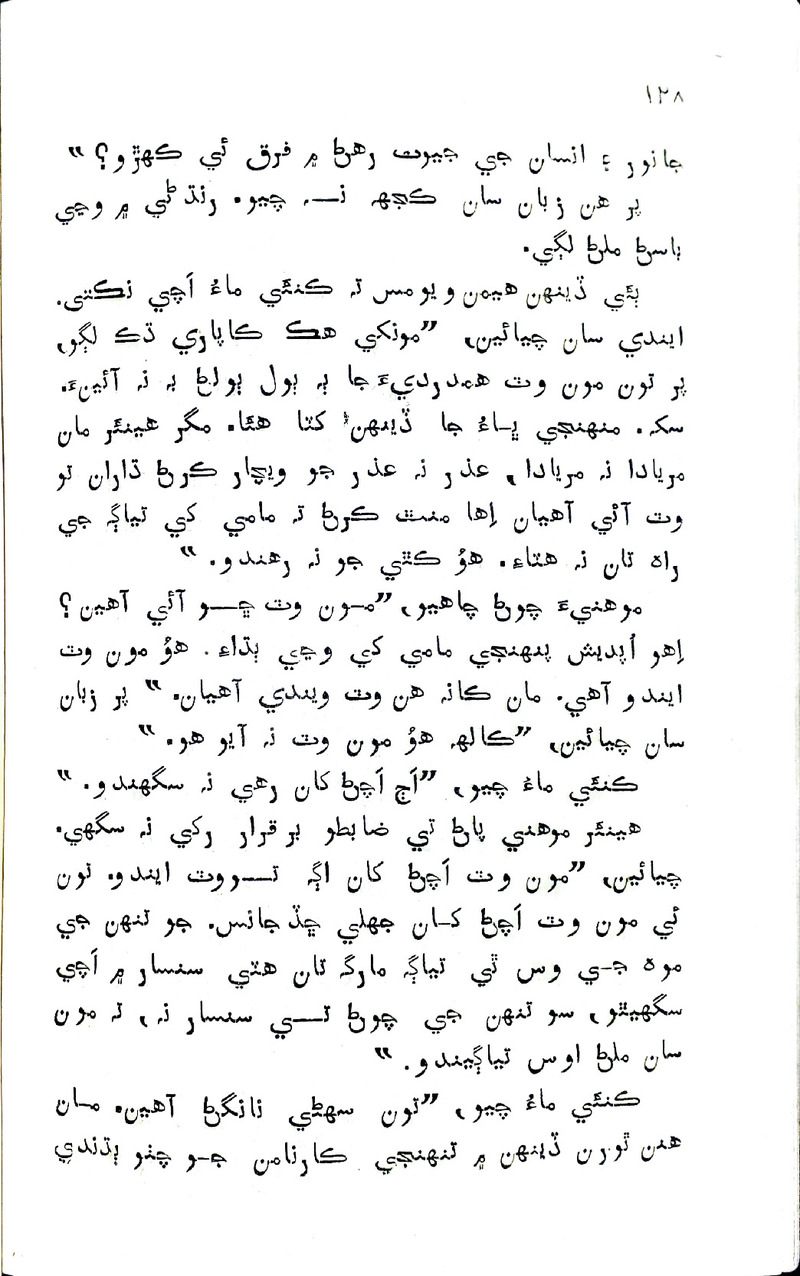 ١٢٨
جانور ۽ انسان جي جيوت رهڻ ۾ فرق ئي ڪهڙو؟”
پر هن زبان سان ڪجهہ نـــہ چيو. رنڌڻي ۾ وڃي
باسڻ ملڻ لڳي.
ٻئي ڏينهن هيمن ويومس تہ ڪنئي ماءُ اَچي نڪتي.
ايندي سان چيائين، ”مونکي هڪ ڪاپاري ڌڪ لڳو،
پر تون مون وٽ همدرديءَ جا ٻہ ٻول ٻولڻ بہ نہ آئينءَ.
سکہ. منهنجي ڀـاءُ جا ڏينهن ڪٿا هئا. مگر هينئر مان
مريادا نہ مريادا، عذر نہ عذر جو ويچار ڪرڻ ڌاران تو
وٽ آئي آهيان اِها منٿ ڪرڻ تہ مامي کي تياڳ جي
راه تان نہ هٽاءِ. هوُ ڪٿي جو نہ رهندو.”
موهنيءَ چوڻ چاهيو، ”مـون وٽ ڇـــو آئي آهين؟
اِهو اُپديش پنهنجي مامي کي وڃي ٻڌاءِ. هوُ مون وٽ
ايندو آهي. مان ڪانہ هن وٽ ويندي آهيان.” پر زبان
سان چيائين، ”ڪالهہ هوُ مون وٽ نہ آيو هو.”
ڪنئي ماءُ چيو، ”اَڄ اَچڻ کان رهي نہ سگهندو.”
هينئر موهني پاڻ تي ضابطو برقرار رکي نہ سگهي.
چيائين، ”مون وٽ اَچڻ کان اڳہ تـــروت ايندو. تون
ئي مون وٽ اَچڻ کـان جهلي ڇڏجانس. جو تنهن جي
موه جـي وس ٿي تياڳہ مارگہ تان هٽي سنسار ۾ اَچي
سگهيٿو، سو تنهن جي چوڻ تـــي سنسار نہ، تہ مون
سان ملڻ اوس تياڳيندو.”
ڪنئي ماءُ چيو، ”تون سهڻي نانگڻ آهين. مـان
هنن ٿورن ڏينهن ۾ تنهنجي ڪارنامن جـو چٺو ٻڌندي